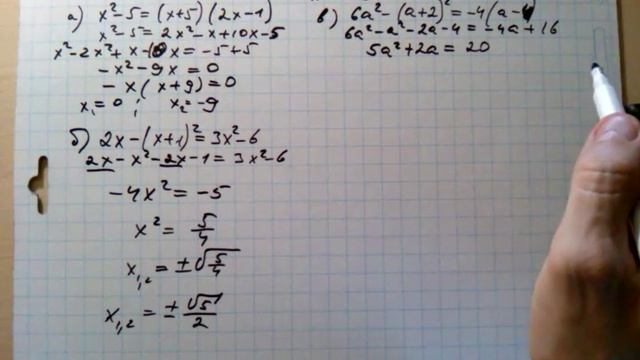 а) x²-5=(x+5)(2x-1)
x²-5=2x²-x+10x-5
x²-2x²+x-10x=-5+5
-x²-9x=0
-x(x+9)=0
x₁=0; x₂=-9
б) 2x-(x+1)²=3x²-6
2x-x²-2x-1=3x²-6
-4x²=-5
x²=5/4
x₁,₂=±√5/4
x₁,₂=±√5/2
в) 6a²-(a+2)²=-4(a-4)
6a²-a²-2a-4=-4a+16
5a²+2a=20